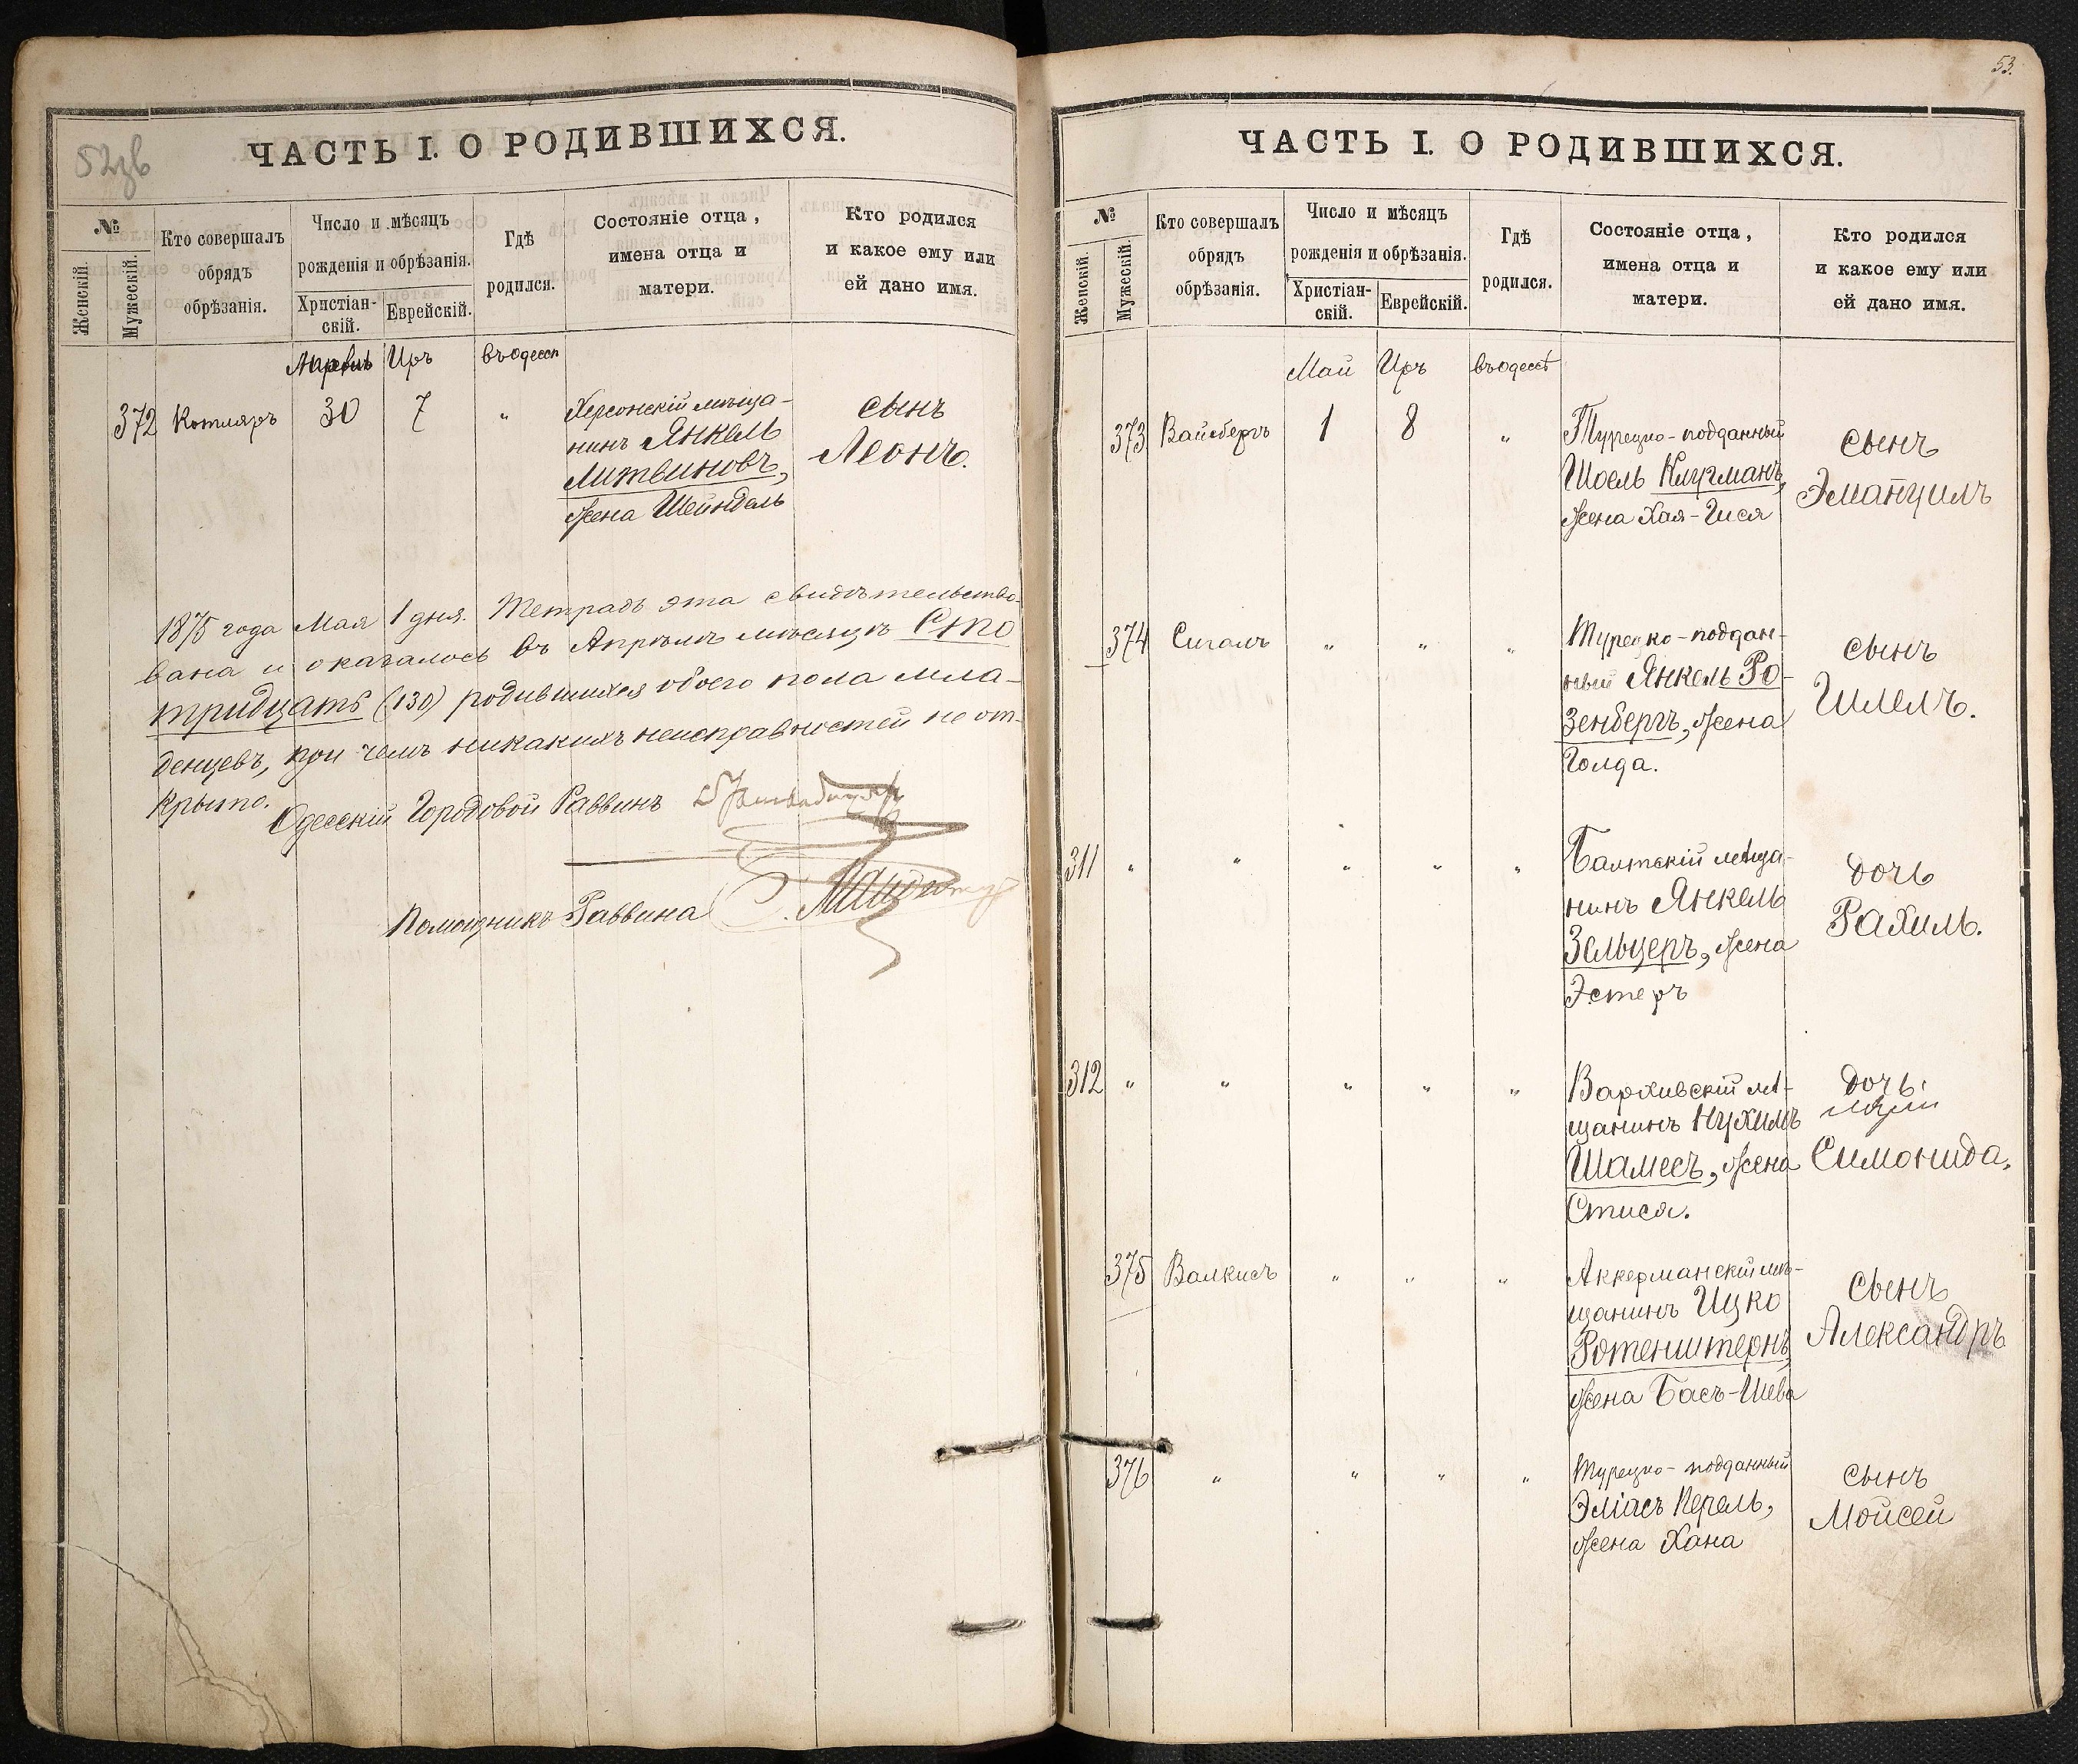 52зв
ЧАСТЬ I. О РОДИВШИХСЯ.
№
Женскій.
Мужескій.
Кто совершалъ
обрядъ
обрѣзанія.
Число и мѣсяцъ
рожденія и обрѣзанія.
Христіан-
скій.
Еврейскій.
Гдѣ
родился.
Состояніе отца,
имена отца и
матери.
Кто родился
и какое ему или
ей дано имя.
Апрель Иръ въ Одессѣ
372 Котляръ 30 7 " Херсонскій мѣща-
нинъ Янкель
Литвиновъ,
жена Шейндель
сынъ
Леонъ.
1875 года Мая 1 дня. Тетрадь эта свидѣтельство-
вана и оказалось въ Апрѣлѣ мѣсяцѣ Сто
тридцать (130) родившихся обоего пола мла-
денцевъ, при чемъ никакихъ неисправностей не от-
крыто.
Одесскій Городовой Раввинъ
Помощникъ Раввина
53.
ЧАСТЬ I. О РОДИВШИХСЯ.
№
Женскій.
Мужескій.
Кто совершалъ
обрядъ
обрѣзанія.
Число и мѣсяцъ
рожденія и обрѣзанія.
Христіан-
скій.
Еврейскій.
Гдѣ
родился.
Состояніе отца,
имена отца и
матери.
Кто родился
и какое ему или
ей дано имя.
Май Иръ въ Одессѣ
373 Вайсбергъ 1 8 " Турецко-подданный
Шоель Клигманъ,
жена Хая-Гися
сынъ
Эмануилъ
374 Сигалъ " " " Турецко-поддан-
ный Янкель Ро-
зенбергъ, жена
Голда.
сынъ
Шлелъ.
311 " " " " " Балтскій мѣща-
нинъ Янкель
Зельцеръ, жена
Эстеръ
дочь
Рахиль.
312 " " " " " мѣ-
щанинъ Нухимъ
Шамесъ, жена
Стися.
дочь
Симонида.
375 Валкисъ " " " Аккерманскій мѣ-
щанинъ Ицко
Ротенштернъ,
жена Бась-Шева
сынъ
Александръ
376 " " " " Турецко-подданный
Эліасъ Перель,
жена Хана
сынъ
Мойсей